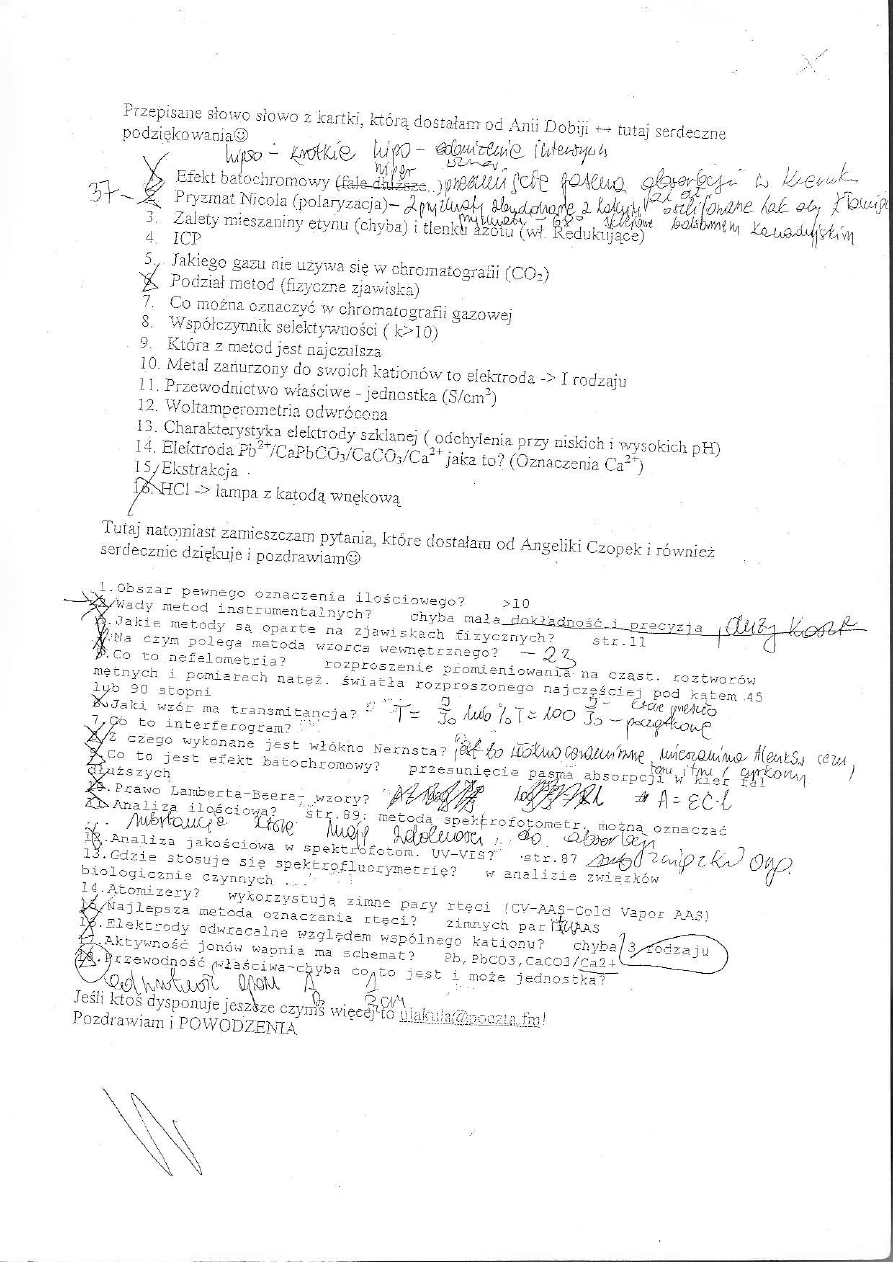 Przepisane słowo słowo z kartki, którą dostałam od Anii Dobiji ↔ tutaj serdeczne
podziękowania☺
hipso – krótkie hipo –
hiper
37 –
Efekt batochromowy (fale dłuższe..) absorbcji w kierunk
Pryzmat Nicola (polaryzacja) – 2 pryzmaty zbudowane z
3. Zalety mieszaniny etynu (chyba) i tlenku azotu (wł. Redukujące) balsamem kanadyjskim
4. ICP
5. Jakiego gazu nie używa się w chromatografii (CO₂)
6. Podział metod (fizyczne zjawiska)
7. Co można oznaczyć w chromatografii gazowej
8. Współczynnik selektywności ( k>10)
9. Która z metod jest najczulsza
10. Metal zanurzony do swoich kationów to elektroda -> I rodzaju
11. Przewodnictwo właściwe - jednostka (S/cm³)
12. Woltamperometria odwrócona
13. Charakterystyka elektrody szklanej ( odchylenia przy niskich i wysokich pH)
14. Elektroda Pb²⁺/CaPbCO₃/CaCO₃/Ca²⁺ jaka to? (Oznaczenia Ca²⁺)
15. Ekstrakcja
16. HCl -> lampa z katodą wnękową
Tutaj natomiast zamieszczam pytania, które dostałam od Angeliki Czopek i również
serdecznie dziękuje i pozdrawiam☺
1. Obszar pewnego oznaczenia ilościowego? >10
2. Wady metod instrumentalnych? chyba mała dokładność i precyzja, duży koszt
3. Jakie metody są oparte na zjawiskach fizycznych? str.11
4. Na czym polega metoda wzorca wewnętrznego? – 23
5. Co to nefelometria? rozproszenie promieniowania na cząst. roztworów
mętnych i pomiarach natęż. światła rozproszonego najczęściej pod kątem 45
lub 90 stopni
6. Jaki wzór ma transmitancja? T = J/J₀ lub %T = 100 J/J₀ – początkowe
7. Co to interferogram?
8. Z czego wykonane jest włókno Nernsta? jest to włókno
9. Co to jest efekt batochromowy? przesunięcie pasma absorpcji w kier fal
dłuższych
10. Prawo Lamberta-Beera- wzory? A = εC·l
11. Analiza ilościowa? str.89; metodą spektrofotometr. można oznaczać
substancje które mają zdolność do absorbcji
12. Analiza jakościowa w spektrofotom. UV-VIS? str.87 związków org.
13. Gdzie stosuje się spektrofluorymetrię? w analizie związków
biologicznie czynnych ...
14. Atomizery? wykorzystują zimne pary rtęci (CV-AAS-Cold Vapor AAS)
15. Najlepsza metoda oznaczania rtęci? zimnych par AAS
16. Elektrody odwracalne względem wspólnego kationu? chyba 3 rodzaju
17. Aktywność jonów wapnia ma schemat? Pb,PbCO3,CaCO3/Ca2+
18. Przewodność właściwa-chyba co to jest i może jednostka?
Jeśli ktoś dysponuje jeszcze czymś więcej to ulakula@poczta.fm!
Pozdrawiam i POWODZENIA